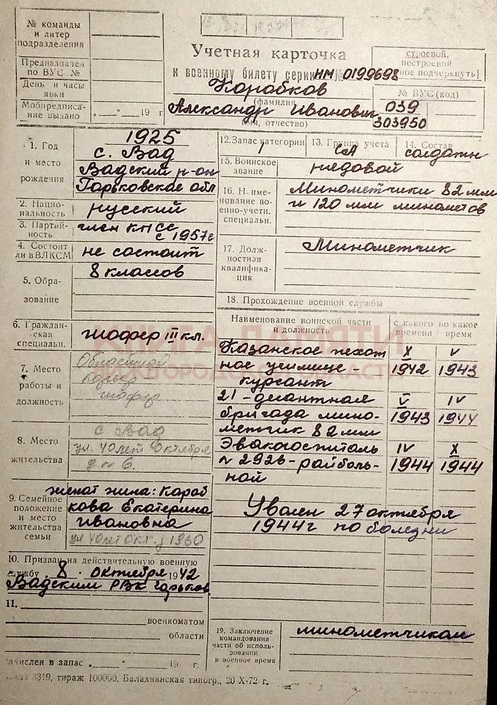 № команды
и литер
подразделения
Предназначен
по ВУС №
День и часы
явки
Мобпредписание
выдано „ “ 19 г.
Учетная карточка
к военному билету серии НМ 0199698
Коробков
(фамилия
Александр Иванович
имя, отчество)
строевой,
нестроевой
подчеркнуть)
№ ВУС (код)
039
303950
1. Год
и место
рождения
1925
с. Вад
Вадский р-он
Горьковской обл
2. Национальность
русский
3. Партийность
член КПСС
с 1957г
4. Состоит
ли в ВЛКСМ
не состоит
5. Образование
8 классов
6. Гражданская
специальн.
шофер III кл.
7. Место
работы и
должность
шофер
8. Место
жительства
с Вад
ул. 40 лет Октября
д № 6.
9. Семейное
положение
и место
жительства
семьи
женат жена: Короб
кова Екатерина
Ивановна
ул 40 лет Окт. 1930
10. Призван на действительную военную
службу X октября 1942
Вадским РВК Горьков
11.
военкоматом
области
Зачислен в запас „ “ 19 г.
12. Запас категории
13. Группа учета
СА
14. Состав
солдаты
15. Воинское
звание
рядовой
16. Наименование
военно-учетн.
специальн.
Минометчики 82 мм
и 120 мм минометов
17. Должностная
квалификация
Минометчик
18. Прохождение военной службы
Наименование воинской части
и должность
с какого
времени
по какое
время
Казанское пехот
ное училище -
курсант
X
1942
IV
1943
21-десантная
бригада мино-
метчик 82 мм
V
1943
IV
1944
Эвакогоспиталь
№ 2926-райболь-
ной
IV
1944
X
1944
Уволен 27 октября
1944г по болезни
19. Заключение
командования
части об использовании
в военное время
минометчиком
тираж 100000. Балахнинская типогр., 20-X-72 г.